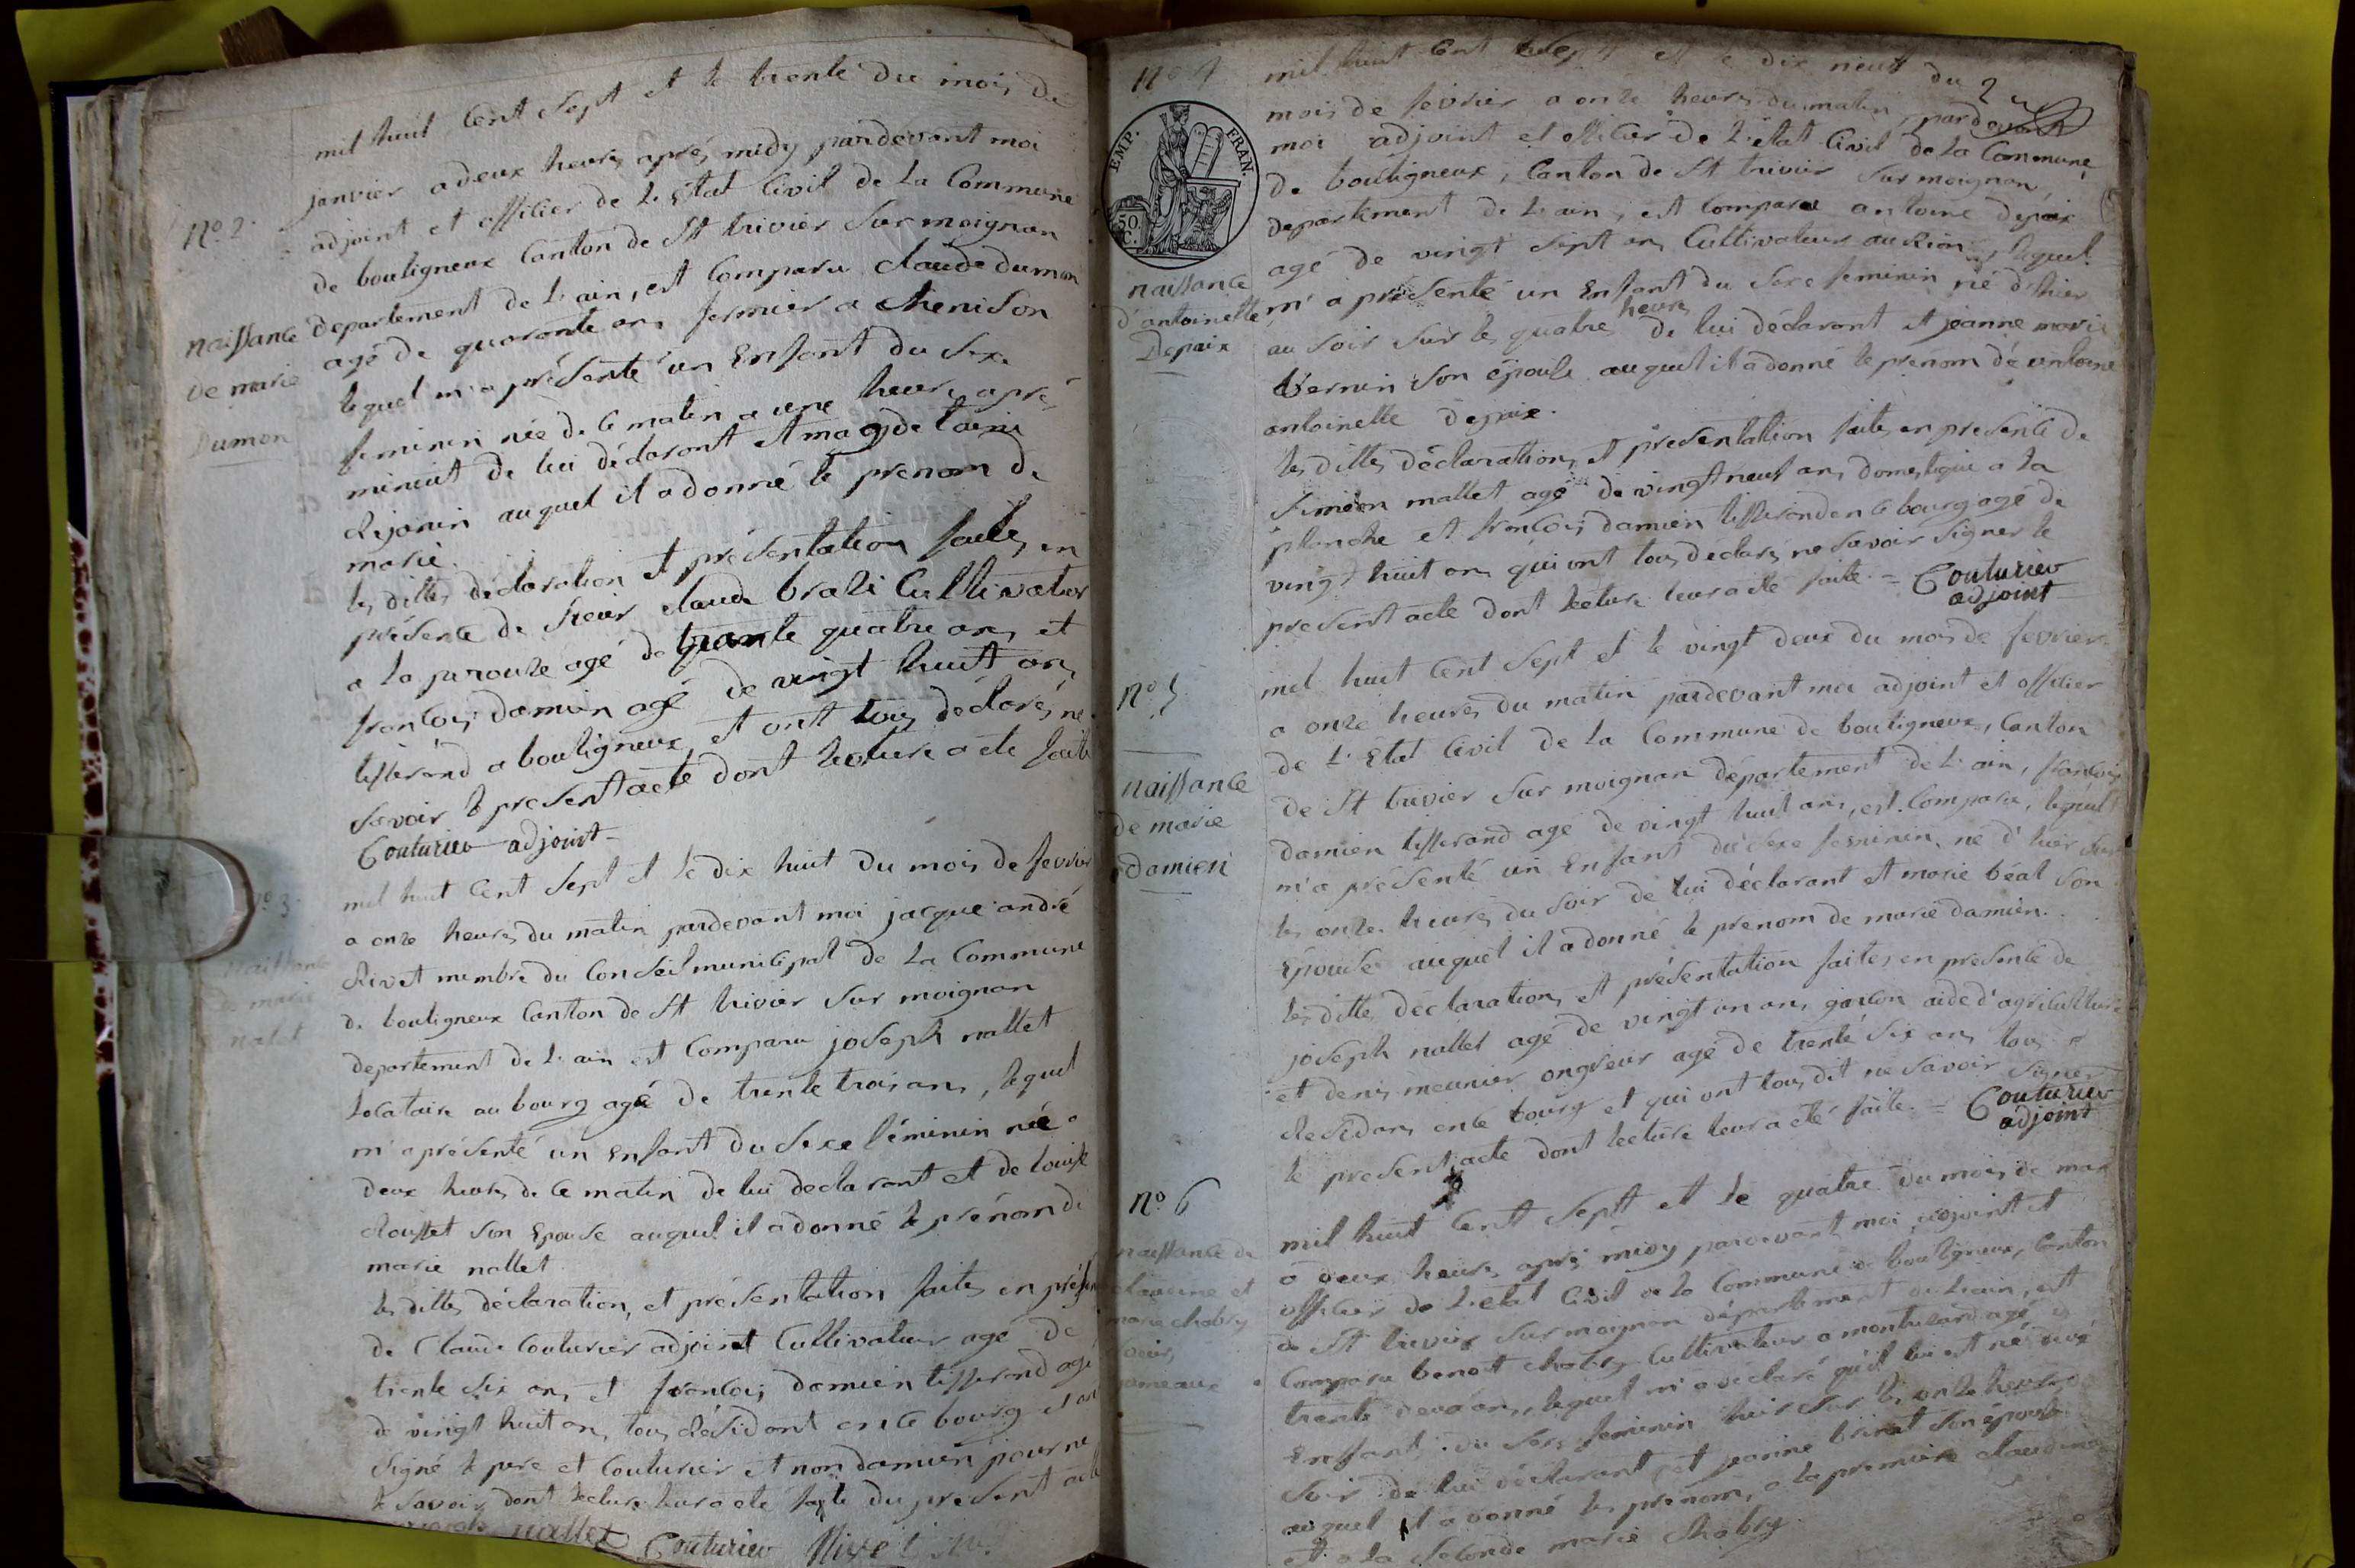 mil huit Cent Sept et le trente du mois de
janvier a deux heures apres midy pardevant moi
No. 2.
adjoint et officier de L'Etat Civil de La Commune
de bouligneux Canton de St trivier Sur moignan
naissance
de marie
Dumon
departement de L'ain, est Comparu claude dumon
agé de quarante ans fermier a
lequel m'a présenté un Enfant du Sexe
feminin née de Ce matin a une heure aprés
minuit de lui déclarant et magdelaine
Rejanin auquel il a donné le prenom de
marie.
les dittes déclaration et présentation faites en
présence de Claude Cultivateur
a la agé de trante quatre ans et
francois damien agé de vingt huit ans
tisserand a bouligneux et ont tous déclarés ne
Savoir le present acte dont lecture a ete faite
Couturier adjoint
mil huit Cent Sept et le dix huit du mois de fevrier
No. 3.
a onze heures du matin pardevant moi jacque andré
Rivet membre du Conseil municipal de La Commune
naissance
de marie
nallet
de bouligneux Canton de St trivier Sur moignan
departement de L'ain est Comparu joseph nallet
Locataire au bourg agé de trente trois ans, lequel
m'a présenté un Enfant du Sexe féminin née a
deux heures de Ce matin de lui declarant et de louise
Rousset Son Epouse auquel il a donné le prénom de
marie nallet.
les dittes déclaration, et présentation faites en présen
de Claude Couturier adjoint Cultivateur agé de
trente Six ans et francois damien tisserand agé
de vingt huit ans, tous Résidant en Ce bourg et ont
Signé le pere et Couturier et non damien pour ne
le Savoir, dont lecture leur a ete faite du present acte
nallet Couturier Rivet
No. 4
mil huit Cent Sept et le dix neuf du
mois de février a onze heures du matin, pardevant
moi adjoint et officier de L'etat Civil de La Commune
EMP. FRAN.
50. C.
de bouligneux, Canton de St trivier Sur moignan,
departement de L'ain, est Comparu antoine depaix
agé de vingt Sept ans Cultivateur au Rion, lequel
naissance
d'antoinette
Depaix
m'a présenté un Enfant du Sexe feminin né d'hier
au Soir Sur les quatre heures de lui déclarant et jeanne marie
Vernin Son épouse auquel il a donné le prenom de antoine
antoinette depaix.
les dittes déclarations, et présentation faites en presence de
Siméon mallet agé de vingt neuf ans, domestique a la
planche et francois damien tisserand en Ce bourg agé de
vingt huit ans qui ont tous déclarés ne Savoir Signer le
present acte dont lecture leur a été faite. = Couturier
adjoint
No. 5
mil huit Cent Sept et le vingt deux du mois de fevrier
a onze heures du matin pardevant moi adjoint et officier
de L'Etat Civil de La Commune de bouligneux, Canton
naissance
de marie
damien
de St trivier Sur moignan département de L'ain, francois
damien tisserand agé de vingt huit ans, est Comparu, lequel
m'a présenté un Enfant du Sexe feminin, né d'hier Sur
les onze heures du Soir de lui déclarant et marie béal Son
Epouse auquel il a donné le prenom de marie damien.
les dittes déclarations et présentation faites en presence de
joseph nallet agé de vingt un ans, garcon aide d'agriculture
et denis meunier ongreur agé de trente Six ans tous
Residans en Ce bourg et qui ont tous dit ne Savoir Signer
le present acte dont lecture leur a été faite. = Couturier
adjoint
No. 6
mil huit Cent Sept et le quatre du mois de mar
a deux heures aprés midy pardevant moi adjoint et
naissance de
claudine et
marie chabry
Soeurs
jumeaux
officier de L'etat Civil de la Commune de bouligneux, Canton
de St trivier Sur moignan département de L'ain, est
Comparu benoit chabry Cultivateur a agé de
trente deux ans, lequel m'a déclaré qu'il lui est né deux
Enfant du Sexe feminin hier Sur les onze heures
Soir de lui déclarant et jeanne Son épouse
auquel il a donné les prenom, a la premiere claudine
et a la Seconde marie Chabry